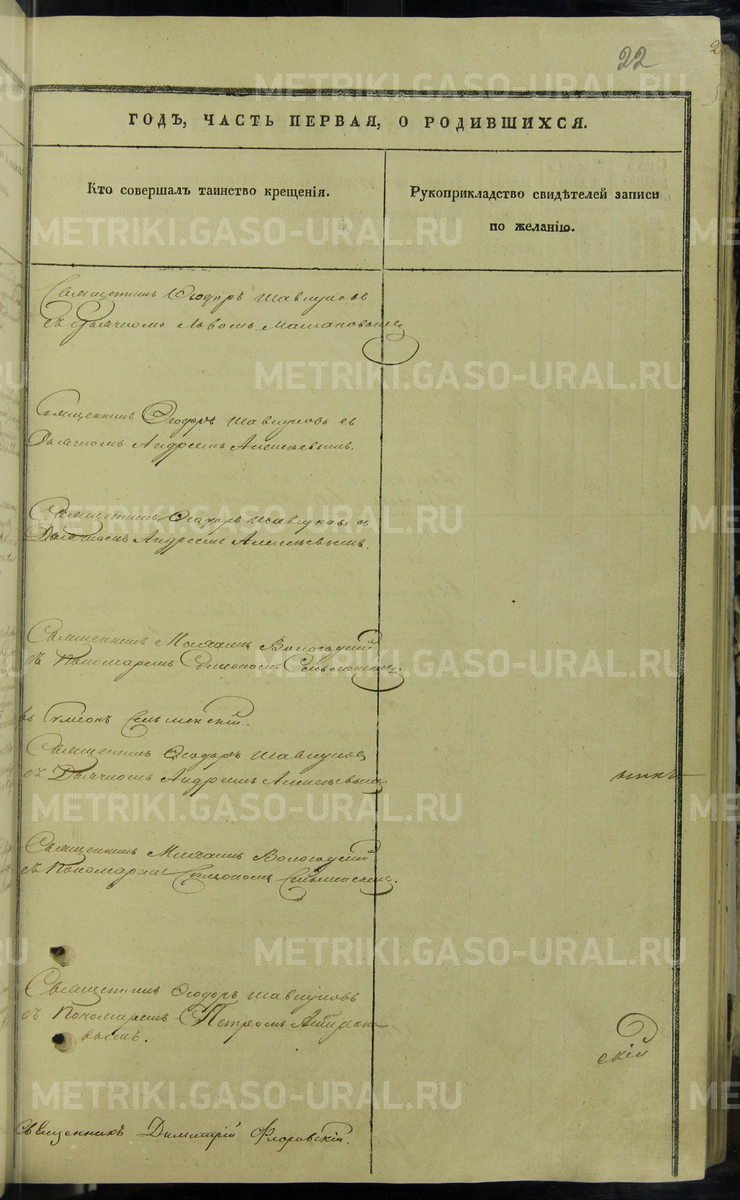 22
ГОДЪ, ЧАСТЬ ПЕРВАЯ, О РОДИВШИХСЯ.
Кто совершалъ таинство крещенія.
Рукоприкладство свидѣтелей записи
по желанію.
Священникъ Ѳеодоръ Шавкуновъ
съ Дьячкомъ Львомъ
Священникъ Ѳеодоръ Шавкуновъ съ
Дьячкомъ Андреемъ Алексѣевымъ.
Священникъ Ѳеодоръ Шавкуновъ съ
Дьячкомъ Андреемъ Алексѣевымъ.
Священникъ Михаилъ Вологодскій
съ Пономаремъ Симеономъ
Священникъ Ѳеодоръ Шавкуновъ
съ Дьячкомъ Андреемъ Алексѣевымъ.
Священникъ Михаилъ Вологодскій
съ Пономаремъ Симеономъ
Священникъ Ѳеодоръ Шавкуновъ
съ Пономаремъ Петромъ
скій
Священникъ Димитрій Флоровскій.
METRIKI.GASO-URAL.RU